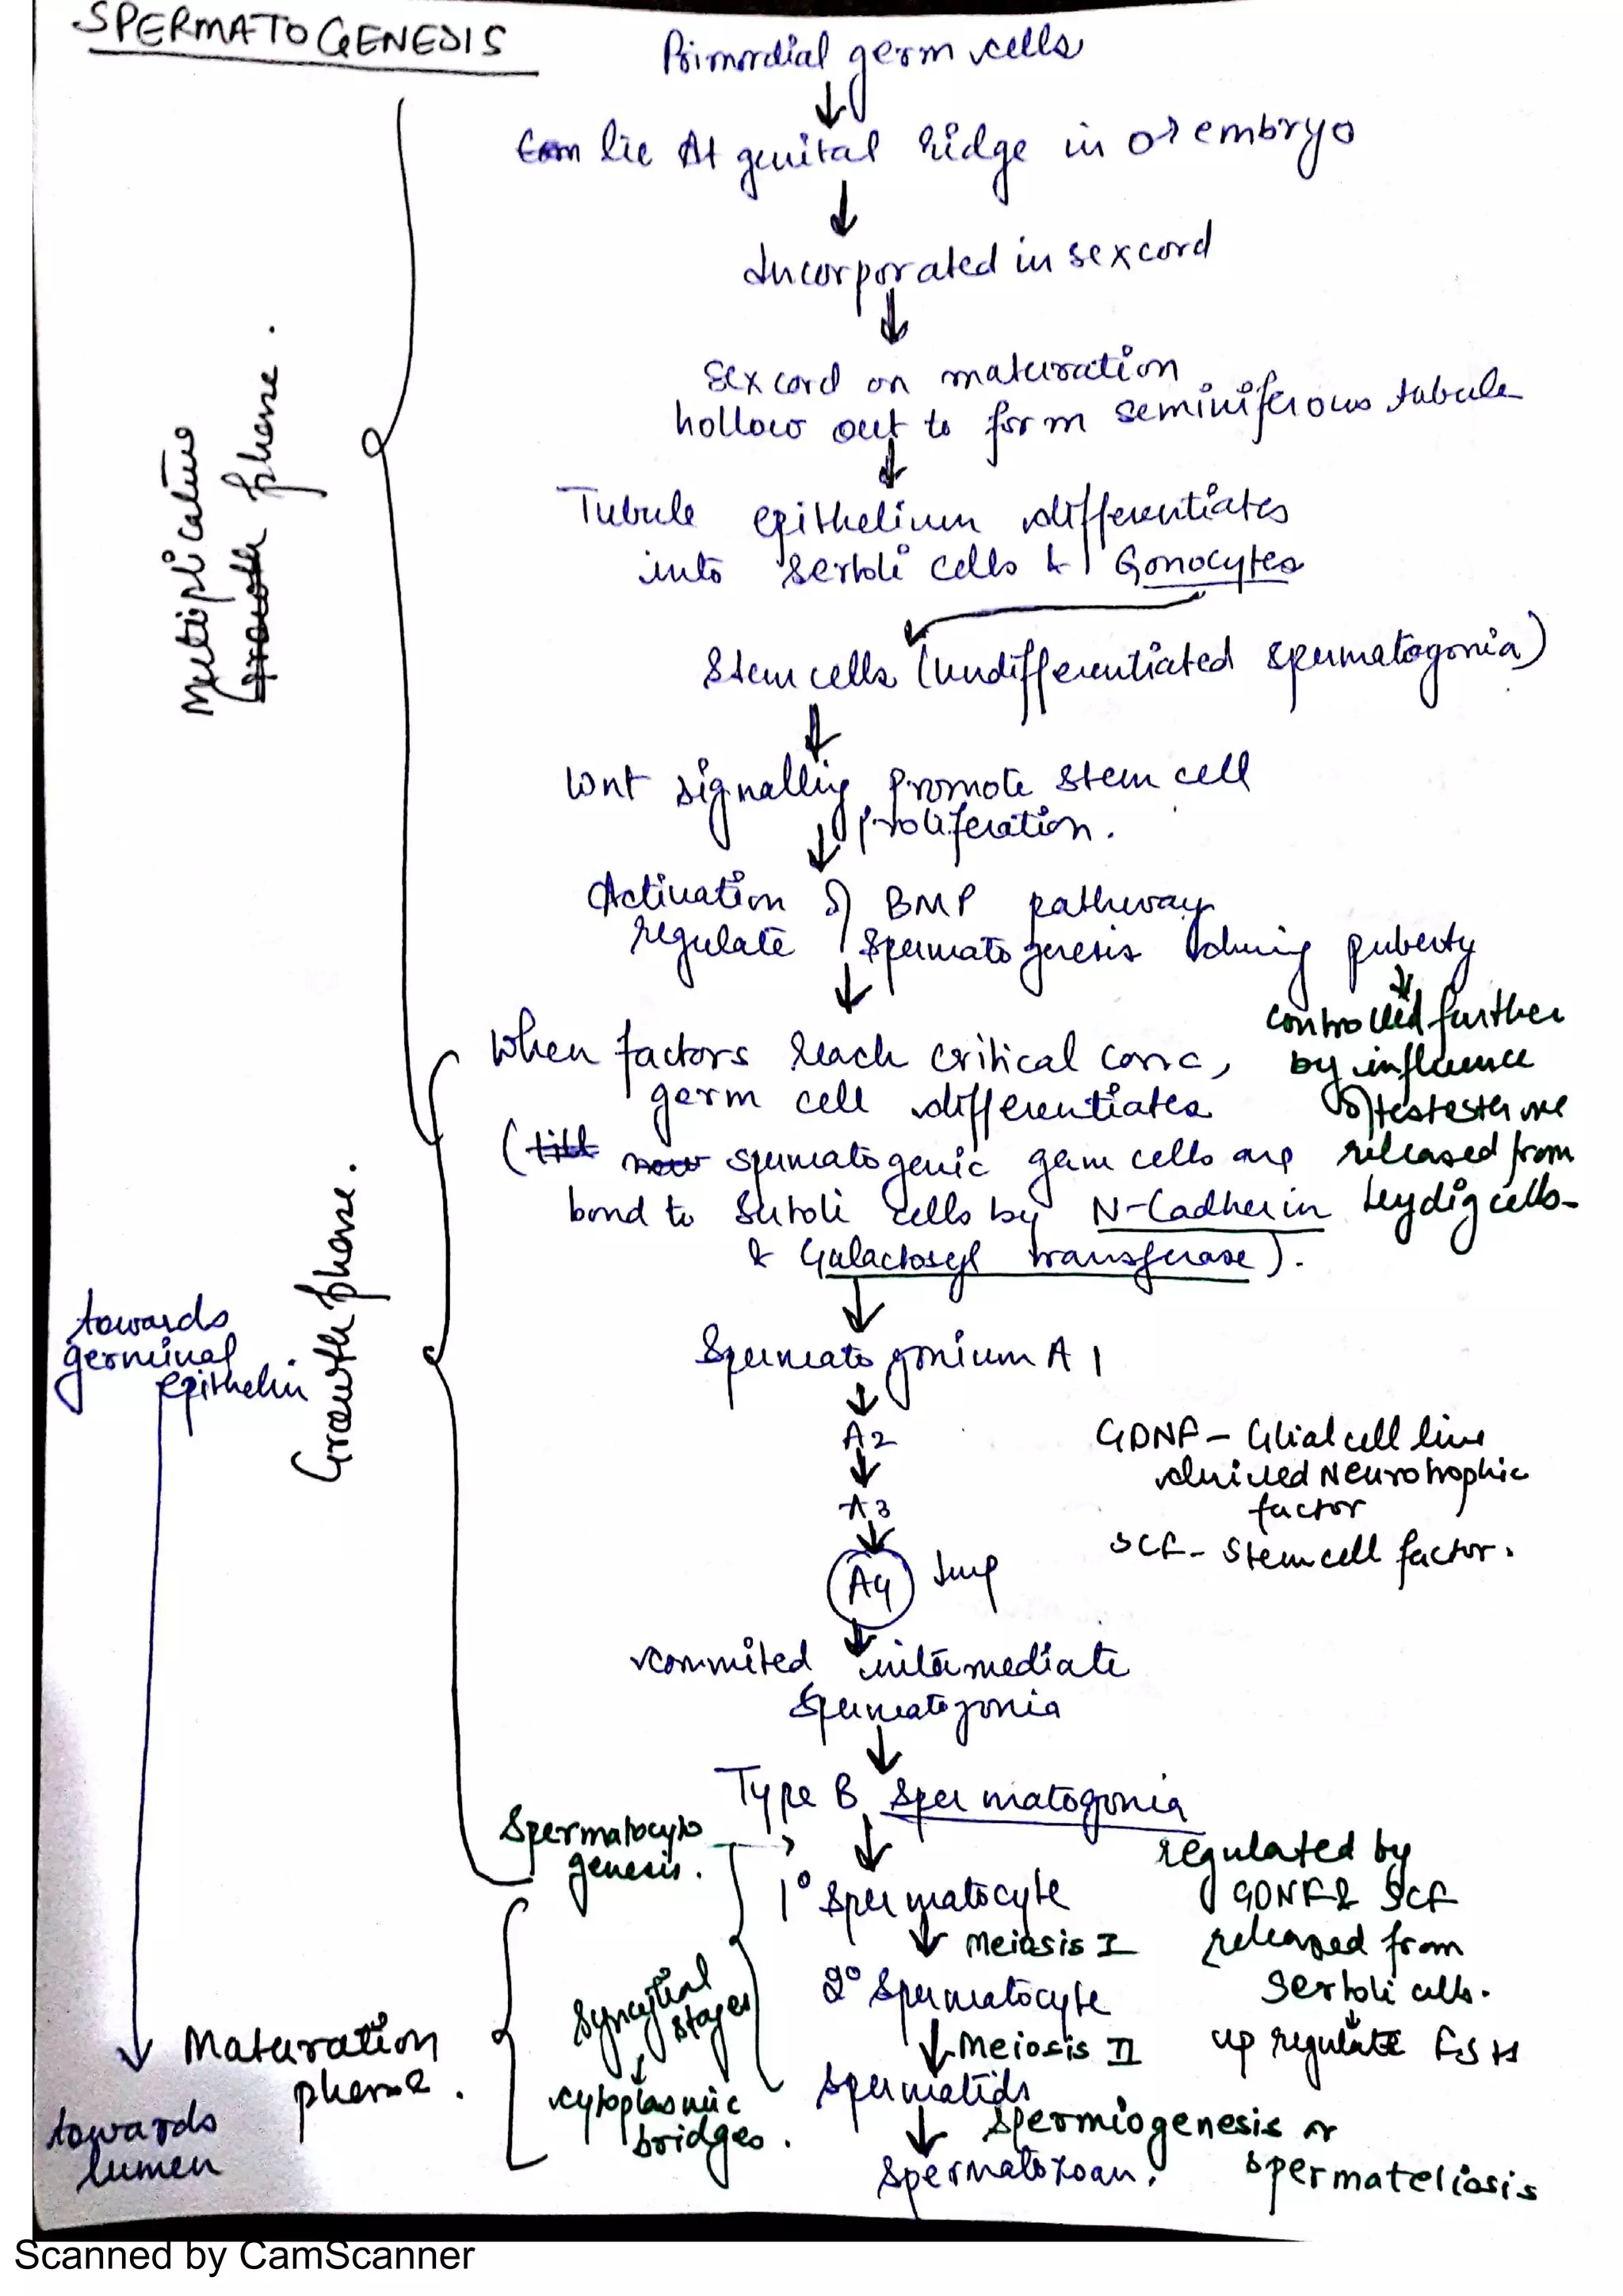 SPERMATOGENESIS
Primordial germ cells
↓
lie At genital ridge in ♂ embryo
↓
Incorporated in sexcord
↓
Sex cord on maturation
hollow out to form seminiferous tubule
↓
Tubule epithelium differentiates
into sertoli cells & Gonocytes
Stem cells (undifferentiated spermatogonia)
↓
Wnt signalling promote stem cell
proliferation.
↓
Activation of BMP pathway
regulate spermatogenesis during puberty
↓
controlled further
by influence
of testesterone
released from
leydig cells-
When factors reach critical conc,
germ cell differentiates
(till now spermatogenic germ cells are
bond to Sertoli cells by N-Cadherin
& Galactosyl transferase).
↓
Multiplicative
Growth phase.
Growth phase.
Spermatogonium A 1
↓
A2
↓
A3
↓
A4 Imp
↓
GDNF - Glial cell line
derived Neurotrophic
factor
SCF - Stem cell factor.
commited intermediate
spermatogonia
↓
Type B Spermatogonia
↓
Spermatocyto
genesis.
1° spermatocyte
↓ Meiosis I
2° Spermatocyte
↓ Meiosis II
spermatids
↓ spermiogenesis or
spermateliosis
spermatozoan.
regulated by
GDNF & SCF
released from
Sertoli cells.
↓
up regulate FSH
Syncytial
stages
↓
cytoplasmic
bridges.
Maturation
phase.
towards
germinal
epithelin
towards
lumen
Scanned by CamScanner